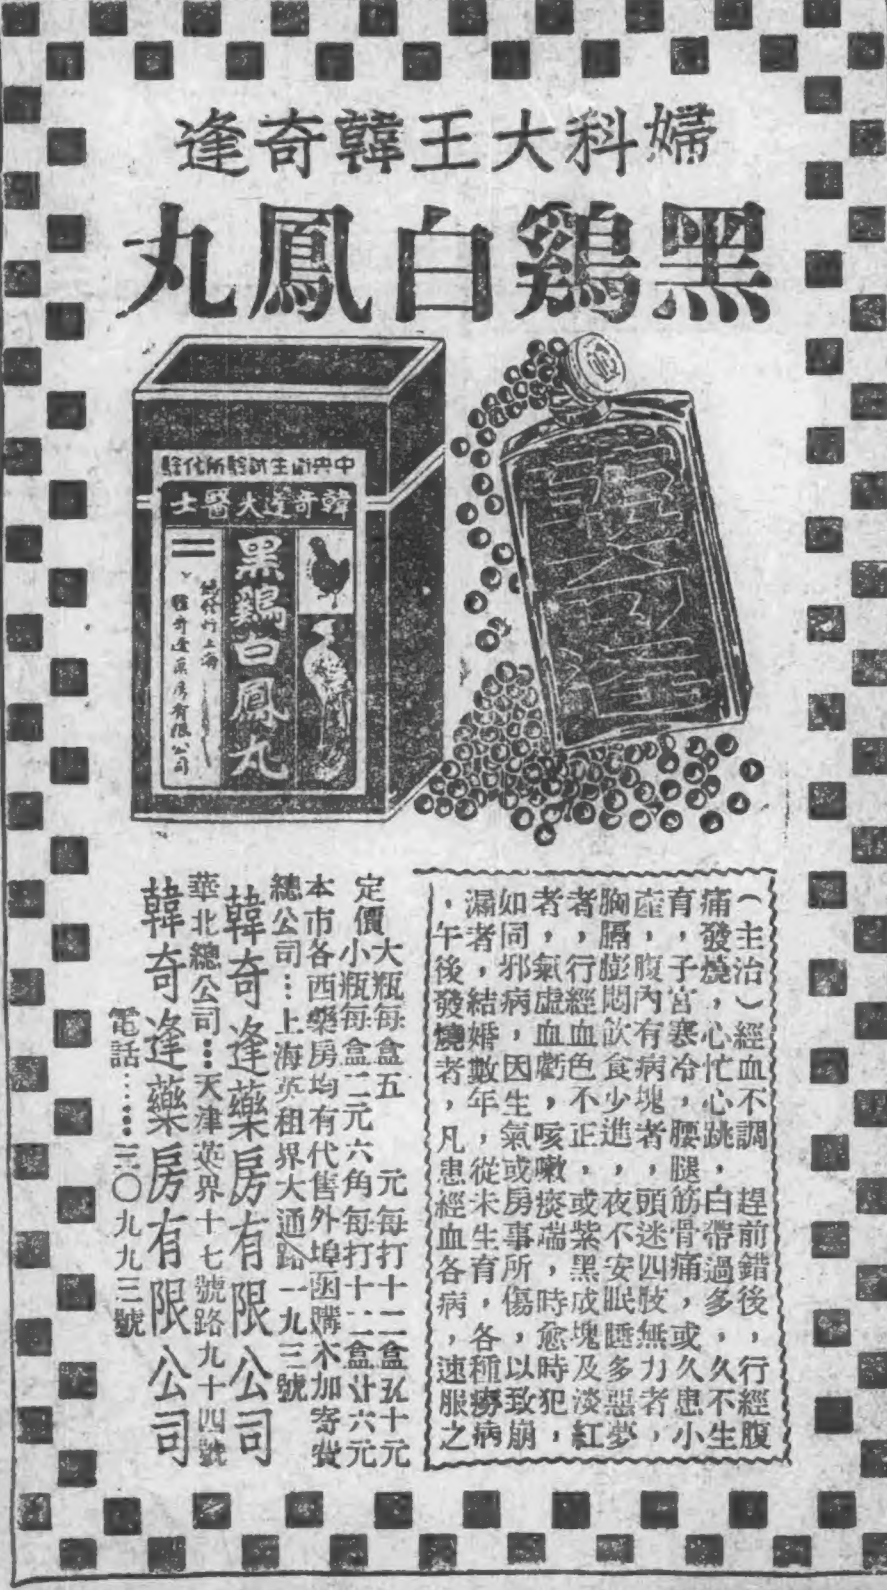 婦科大王韓奇逢
黑鷄白鳳丸
中央衛生試驗所化驗
韓奇逢大醫士
黑鷄白鳳丸
總發行上海
韓奇逢藥房有限公司
韓奇逢
（主治）經血不調　趕前錯後，行經腹
痛發燒，心忙心跳，白帶過多，久不生
育，子宮寒冷，腰腿筋骨痛，或久患小
產，腹內有病塊者，頭迷四肢無力者，
胸膈膨悶飲食少進，夜不安眠睡多惡夢
者，行經血色不正，或紫黑成塊及淡紅
者，氣虛血虧，咳嗽痰喘，時愈時犯，
如同邪病，因生氣或房事所傷，以致崩
漏者，結婚數年，從未生育，各種癆病
，午後發燒者，凡患經血各病，速服之
定價
大瓶每盒五　元每打十二盒五十元
小瓶每盒二元六角每打十二盒廿六元
本市各西藥房均有代售外埠函購不加寄費
總公司…上海英租界大通路一九三號
韓奇逢藥房有限公司
華北總公司…天津英界十七號路九十四號
韓奇逢藥房有限公司
電話……三〇九九三號